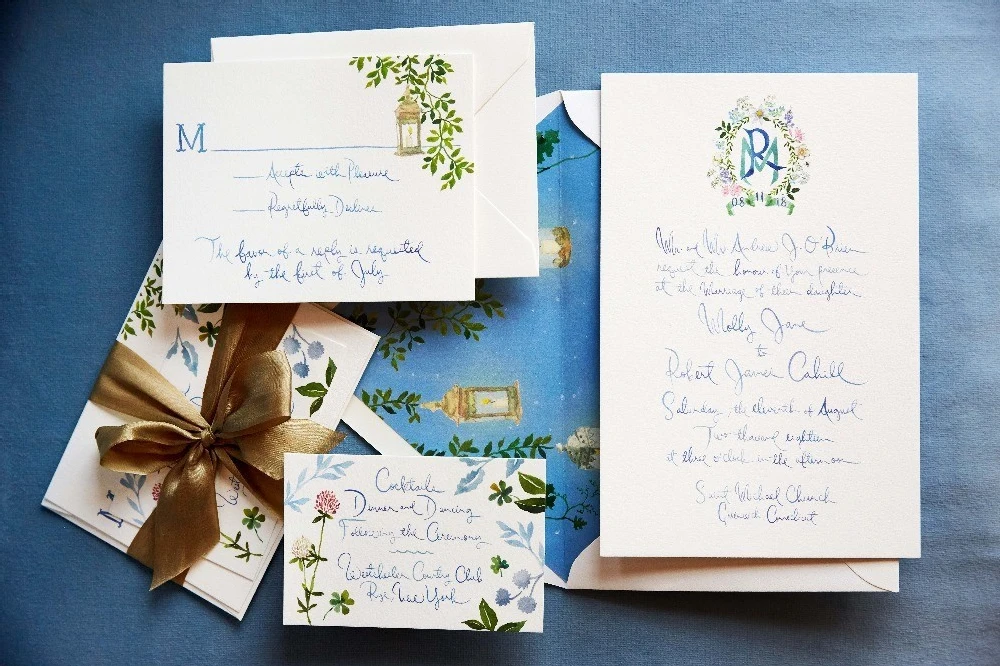 M
Accepts with Pleasure
Regretfully Declines
The favor of a reply is requested
by the first of July
RMA
08 11 18
Mr. and Mrs. Andrew J. O'Brien
request the honour of your presence
at the Marriage of their daughter
Molly Jane
to
Robert James Cahill
Saturday, the eleventh of August
Two thousand eighteen
at three o'clock in the afternoon
Saint Michael Church
Greenwich Connecticut
Cocktails
Dinner and Dancing
Following the Ceremony
Westchester Country Club
Rye, New York